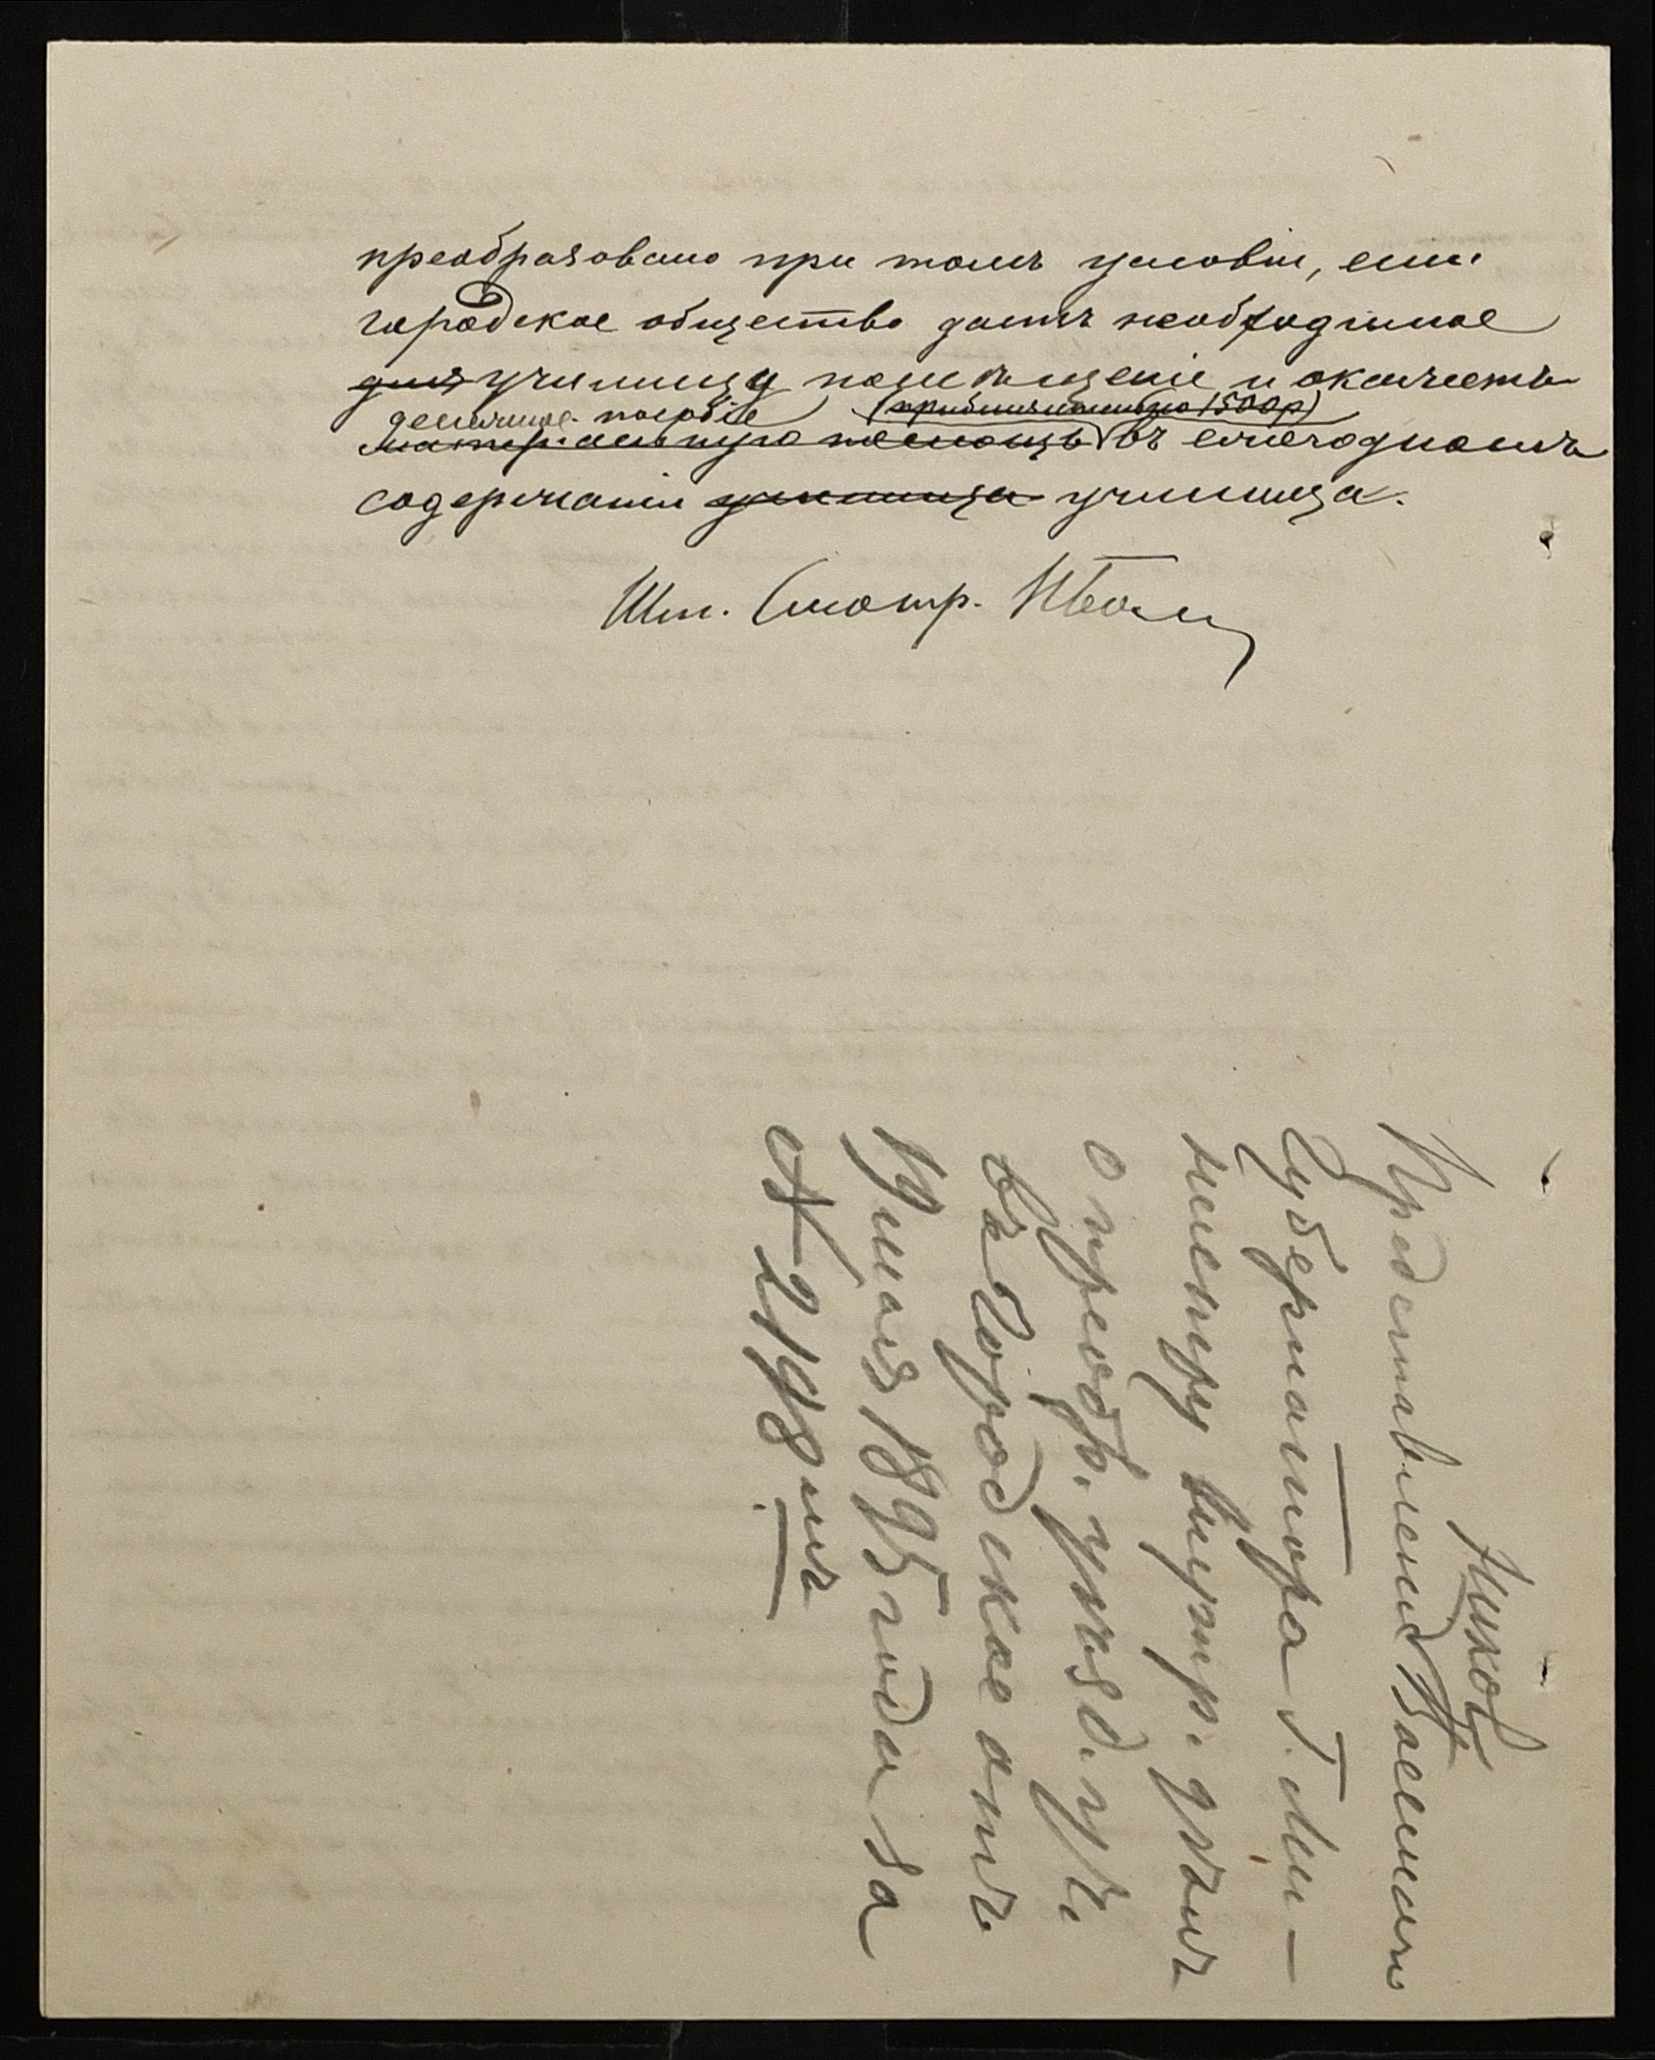 преобразовано при томъ условіи, если
городское общество дастъ необходимое
для училищу помѣщеніе и окажетъ
денежное пособіе (приблизительно 1500р)
матерьяльную помощь въ ежегодномъ
содержаніи училища училища.
Шт. Смотр.
Никол
Представленіе
Губернатора Г. Ми-
нистру внутр. дѣлъ
о преобр. уѣзд. уч.
въ Городское отъ
19 мая 1895 года за
№ 2198 мъ